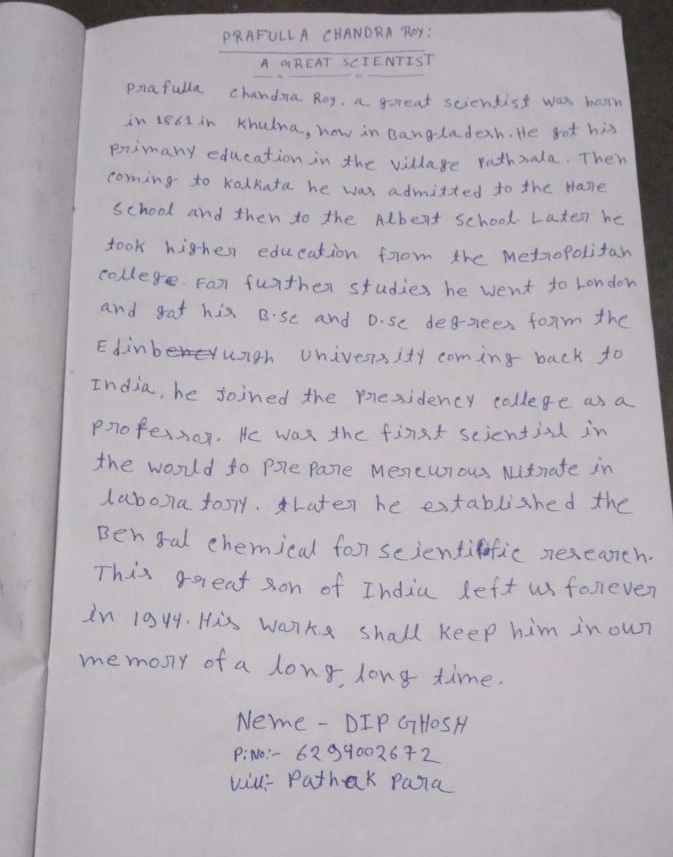 PRAFULLA CHANDRA ROY:
A GREAT SCIENTIST
Prafulla Chandra Roy, a great scientist was born
in 1861 in Khulna, now in Bangladesh. He got his
primany education in the village Pathsala. Then
coming to Kolkata he was admitted to the Hare
School and then to the Albert School. Later he
took higher education from the Metropolitan
college. For further studies he went to London
and got his B.sc and D.sc degrees form the
Edinburgh University coming back to
India, he joined the Presidency college as a
professor. He was the first scientist in
the world to prepare Mercurous Nitrate in
labora tory. Later he established the
Bengal chemical for scientific research.
This great son of India left us forever
in 1944. His works shall keep him in our
memory of a long, long time.
Neme - DIP GHOSH
P.No:- 6294002672
Vill:- Pathak Para